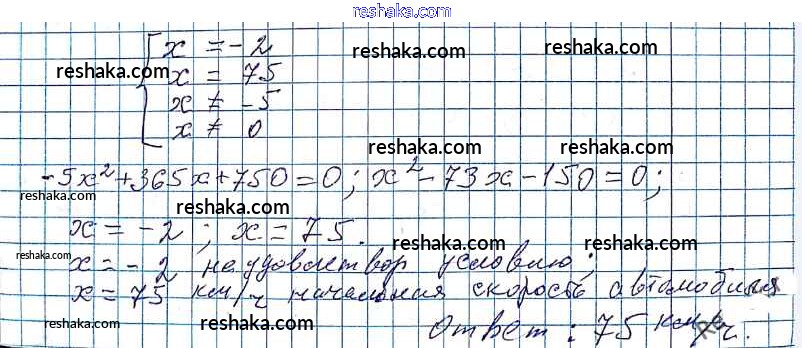 reshaka.com
x = -2
reshaka.com
reshaka.com
reshaka.com
x = 75
reshaka.com
x ≠ -5
x ≠ 0
reshaka.com
reshaka.com
-5x² + 365x + 750 = 0; x² - 73x - 150 = 0;
reshaka.com
reshaka.com
x = -2; x = 75.
reshaka.com
reshaka.com
x = -2 не удовлетвор условию;
x = 75 км/ч начальная скорость автомобиля
reshaka.com
reshaka.com
reshaka.com
Ответ: 75 км/ч.